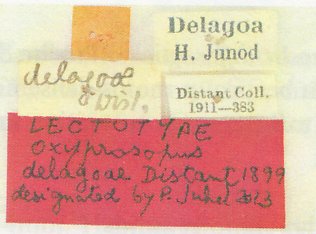 Delagoa
H. Junod
delagoae
Dist.
Distant Coll.
1911—383
LECTOTYPE
oxyprosopus
delagoae Distant 1899
designated by P. Juhel